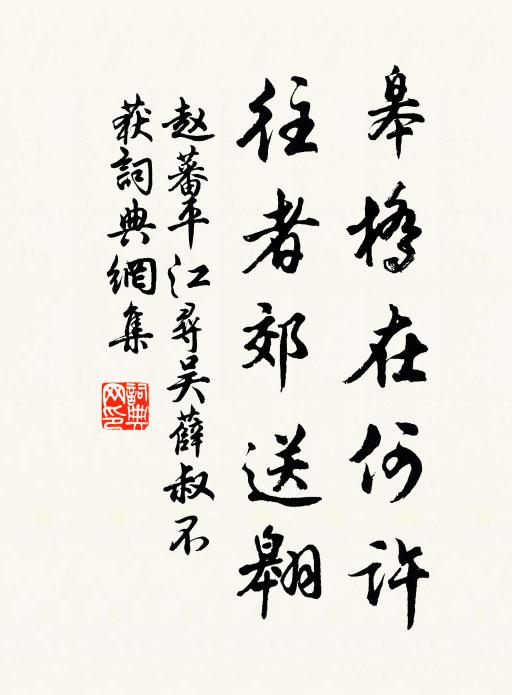 皋橋在何許
往者郊送翱
赵蕃平江尋吴薛叔不
获詞典網集
詞典
网印